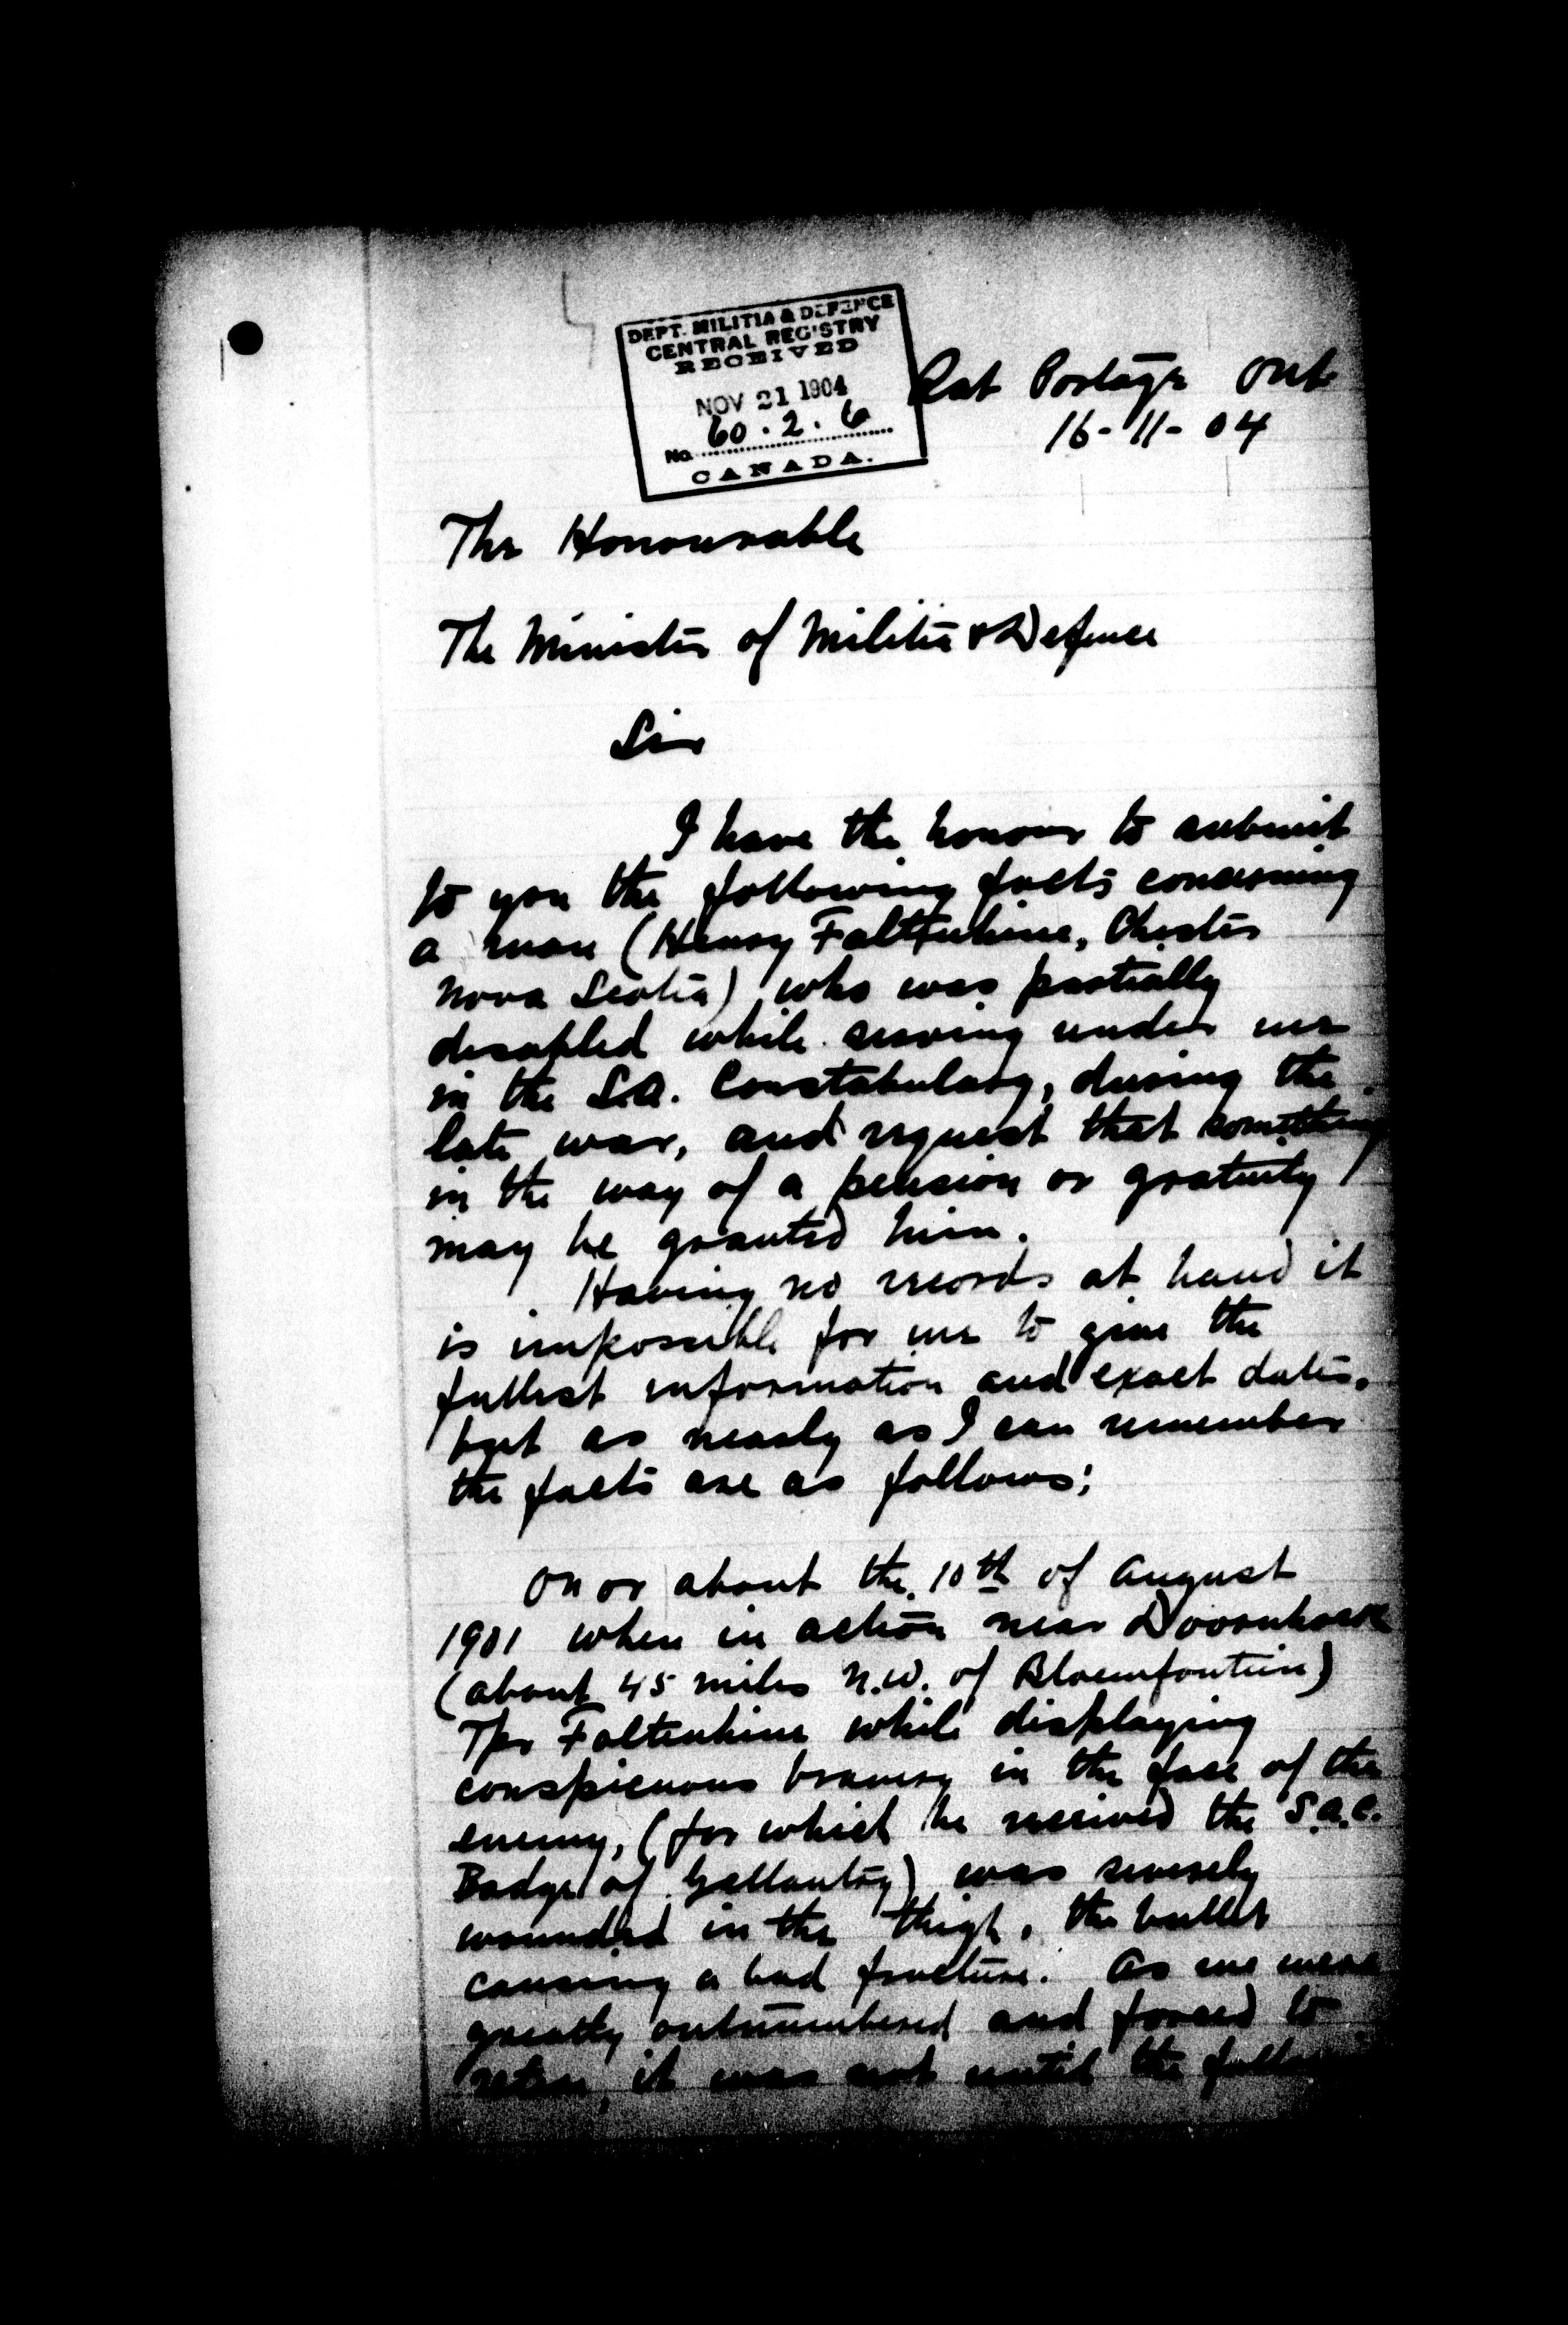 DEPT. MILITIA & DEFENCE
CENTRAL REGISTRY
RECEIVED
NOV 21 1904
No. 60.2.6
CANADA.
Rat Portage Ont
16-11-04
The Honourable
The Minister of Militia & Defence
Sir
I have the honour to submit
to you the following facts concerning
a man (Henry Faltenhine, Chester
Nova Scotia) who was partially
disabled while serving under me
in the S.A. Constabulary, during the
late war, and request that something
in the way of a pension or gratuity
may be granted him.
Having no records at hand it
is impossible for me to give the
fullest information and exact dates,
but as nearly as I can remember
the facts are as follows;
On or about the 10th of August
1901 when in action near
(about 45 miles N.W. of Bloemfontein)
Tpr Faltenhine while displaying
conspicuous bravery in the face of the
enemy, (for which he received the S.A.C.
Badge of Gallantry) was severely
wounded in the thigh, the bullet
causing a bad fracture. As we were
greatly outnumbered and forced to
retire, it was not until the